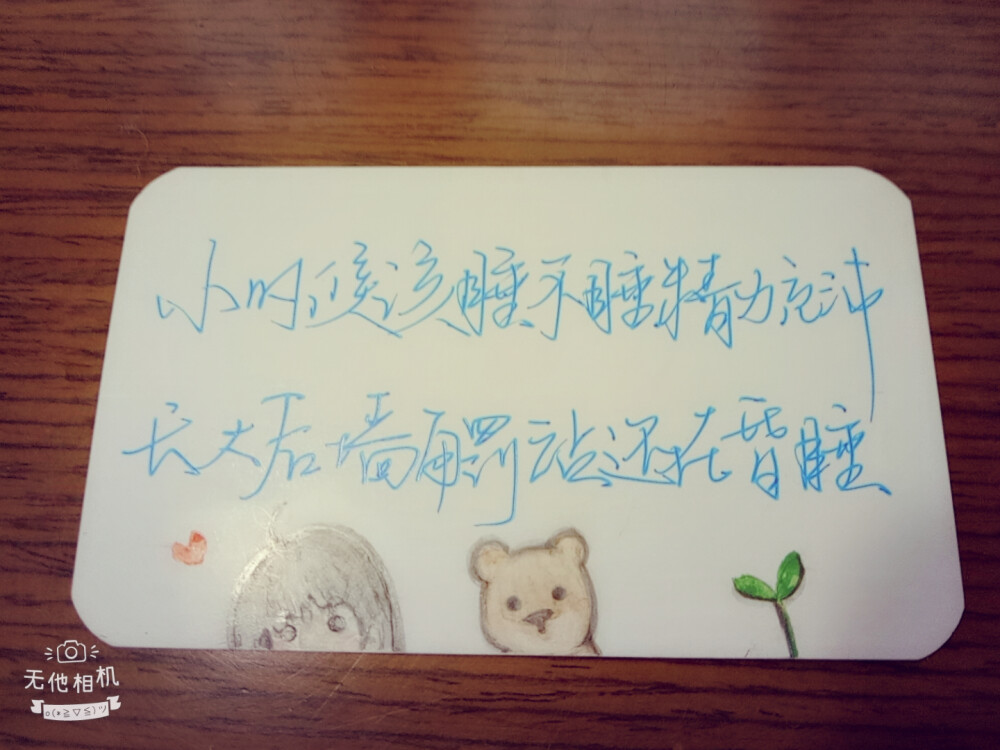 小时候该睡不睡精力充沛
长大后墙角罚站还在昏睡
无他相机
o(*≧▽≦)ツ